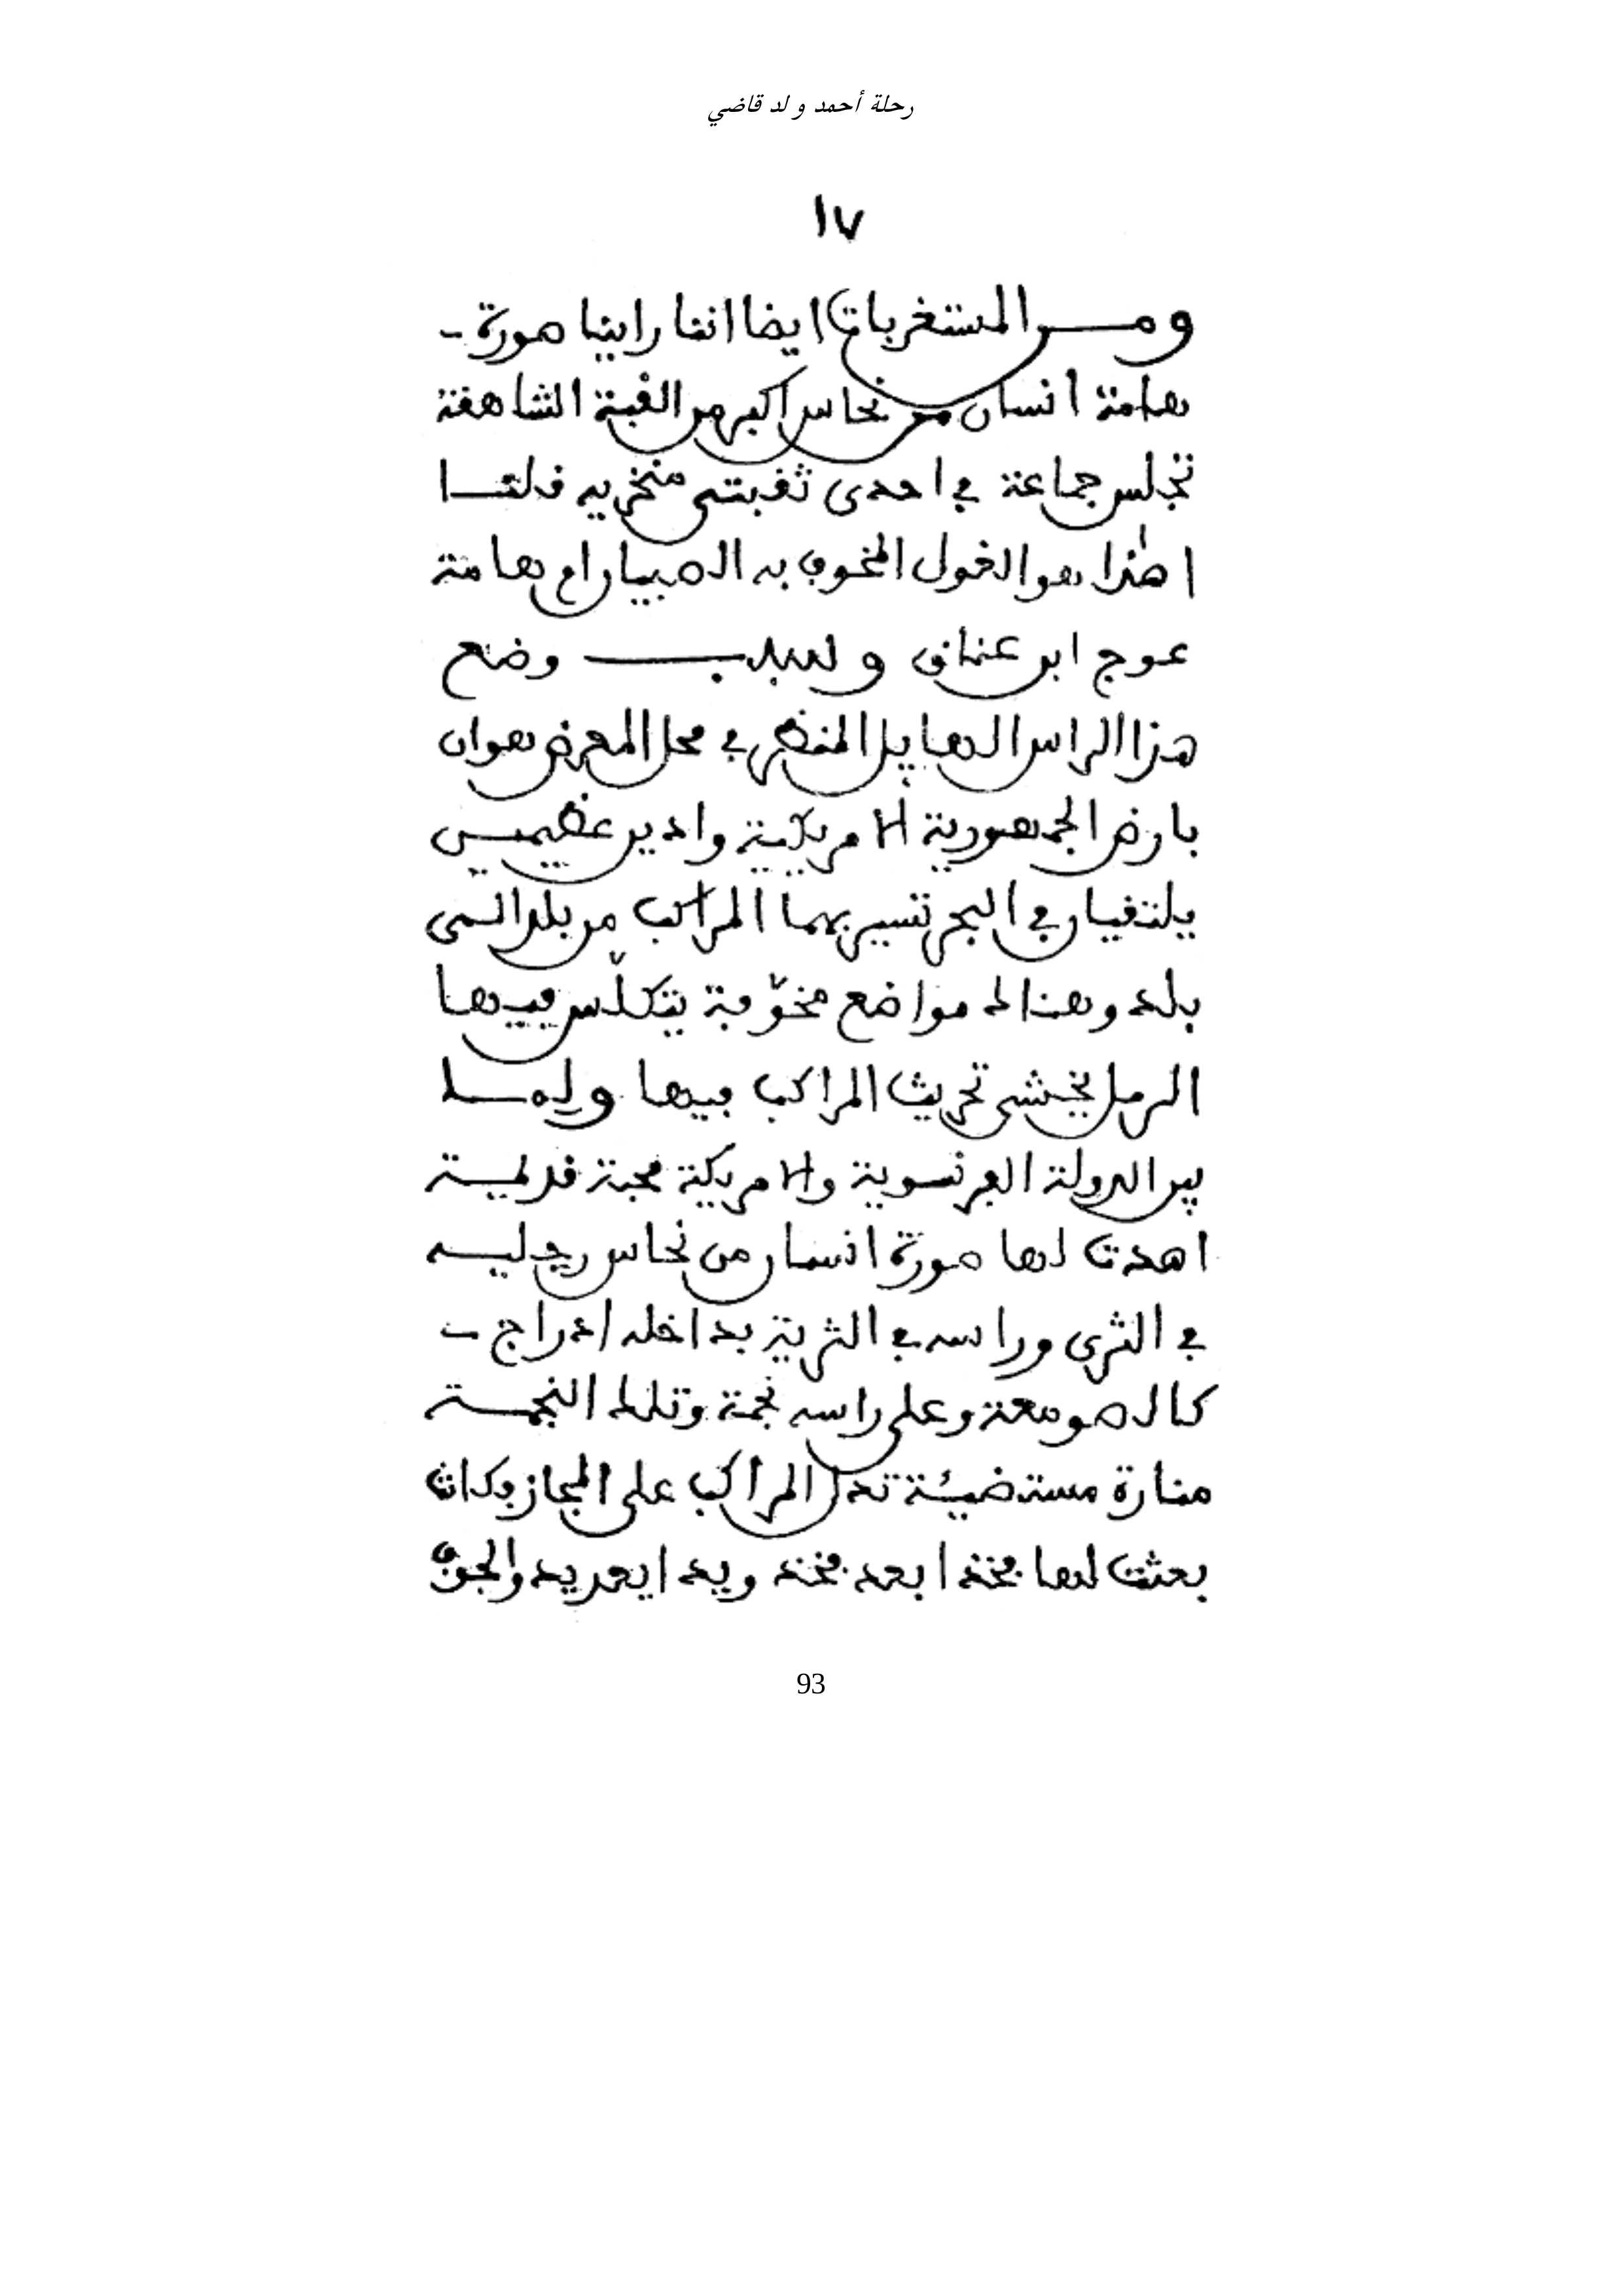 رحلة أحمد و لد قاضي
١٧
ومن المستغربات ايضا اننا راينا صورة
هامة انسان من نحاس اكبر من القبة الشاهقة
تجلس جماعة في احدى ثقبتي منخريه فلنا
اهذا هو الغول المخوف به الصبيان ام هامة
عوج ابن عناق وسبب وضع
هذا الراس الهايل المنظر في محل المعرض هو ان
بارض الجمهورية الامريكية واديين عظيمين
يلتقيان في البحر تسير بهما المراكب من بلد الى
بلد وهنالك مواضع مخوّفة يتكدّس فيها
الرمل يخشى تحريث المراكب فيها ولما
بين الدولة الفرنسوية والامريكة محبة قديمة
اهدت لها صورة انسان من نحاس رجليه
في الثرى وراسه في الثرية بداخله ادراج
كالصومعة وعلى راسه نجمة وتلك النجمة
منارة مستضيئة تدل المراكب على المجاز وكانت
بعثت لها فخذا بعد فخذ ويدا بعد يد والجوف
93